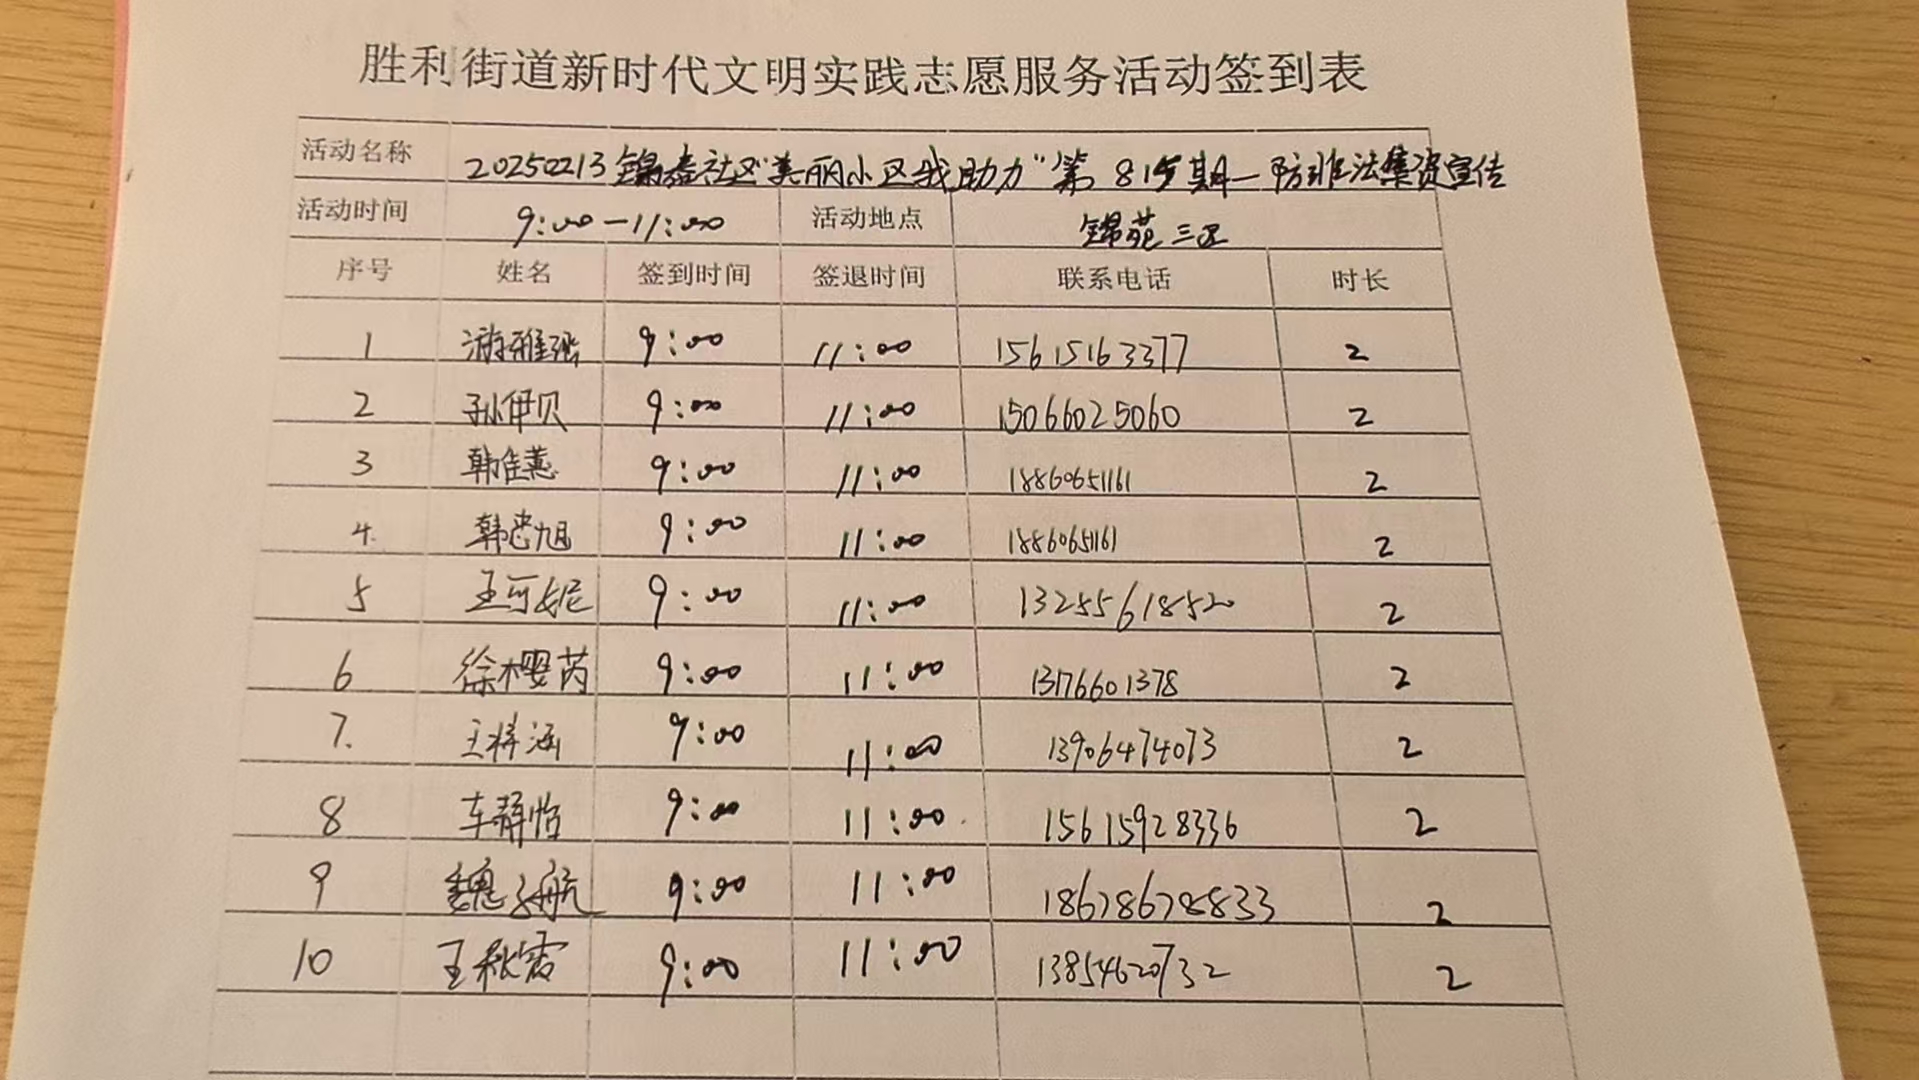 胜利街道新时代文明实践志愿服务活动签到表
活动名称 20250213锦泰社区"美丽小区我助力"第815期—防非法集资宣传
活动时间 9:00—11:00 活动地点 锦苑三区
序号 姓名 签到时间 签退时间 联系电话 时长
1 游雅 9:00 11:00 15615163377 2
2 孙伊贝 9:00 11:00 15066025060 2
3 韩佳慧 9:00 11:00 18860651161 2
4. 韩忠旭 9:00 11:00 18860651161 2
5 王可妮 9:00 11:00 13255618520 2
6 徐樱芮 9:00 11:00 13176601378 2
7. 王梓涵 9:00 11:00 13906474073 2
8 车静怡 9:00 11:00 15615928336 2
9 魏子航 9:00 11:00 18678678833 2
10 王秋霞 9:00 11:00 13854620732 2